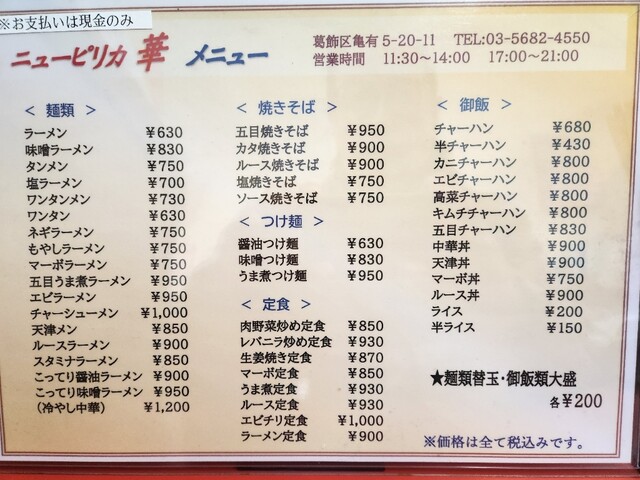 ※お支払いは現金のみ
ニューピリカ 華 メニュー
葛飾区亀有 5-20-11 TEL:03-5682-4550
営業時間 11:30~14:00 17:00~21:00
< 麺類 >
ラーメン ¥630
味噌ラーメン ¥830
タンメン ¥750
塩ラーメン ¥700
ワンタンメン ¥730
ワンタン ¥630
ネギラーメン ¥750
もやしラーメン ¥750
マーボラーメン ¥750
五目うま煮ラーメン ¥950
エビラーメン ¥950
チャーシューメン ¥1,000
天津メン ¥850
ルースラーメン ¥900
スタミナラーメン ¥850
こってり醤油ラーメン ¥900
こってり味噌ラーメン ¥950
(冷やし中華) ¥1,200
< 焼きそば >
五目焼きそば ¥950
カタ焼きそば ¥900
ルース焼きそば ¥900
塩焼きそば ¥750
ソース焼きそば ¥750
< つけ麺 >
醤油つけ麺 ¥630
味噌つけ麺 ¥830
うま煮つけ麺 ¥750
< 定食 >
肉野菜炒め定食 ¥850
レバニラ炒め定食 ¥930
生姜焼き定食 ¥870
マーボ定食 ¥850
うま煮定食 ¥930
ルース定食 ¥930
エビチリ定食 ¥1,000
ラーメン定食 ¥900
< 御飯 >
チャーハン ¥680
半チャーハン ¥430
カニチャーハン ¥800
エビチャーハン ¥800
高菜チャーハン ¥800
キムチチャーハン ¥800
五目チャーハン ¥830
中華丼 ¥900
天津丼 ¥900
マーボ丼 ¥750
ルース丼 ¥900
ライス ¥200
半ライス ¥150
★麺類替玉・御飯類大盛
各¥200
※価格は全て税込みです。